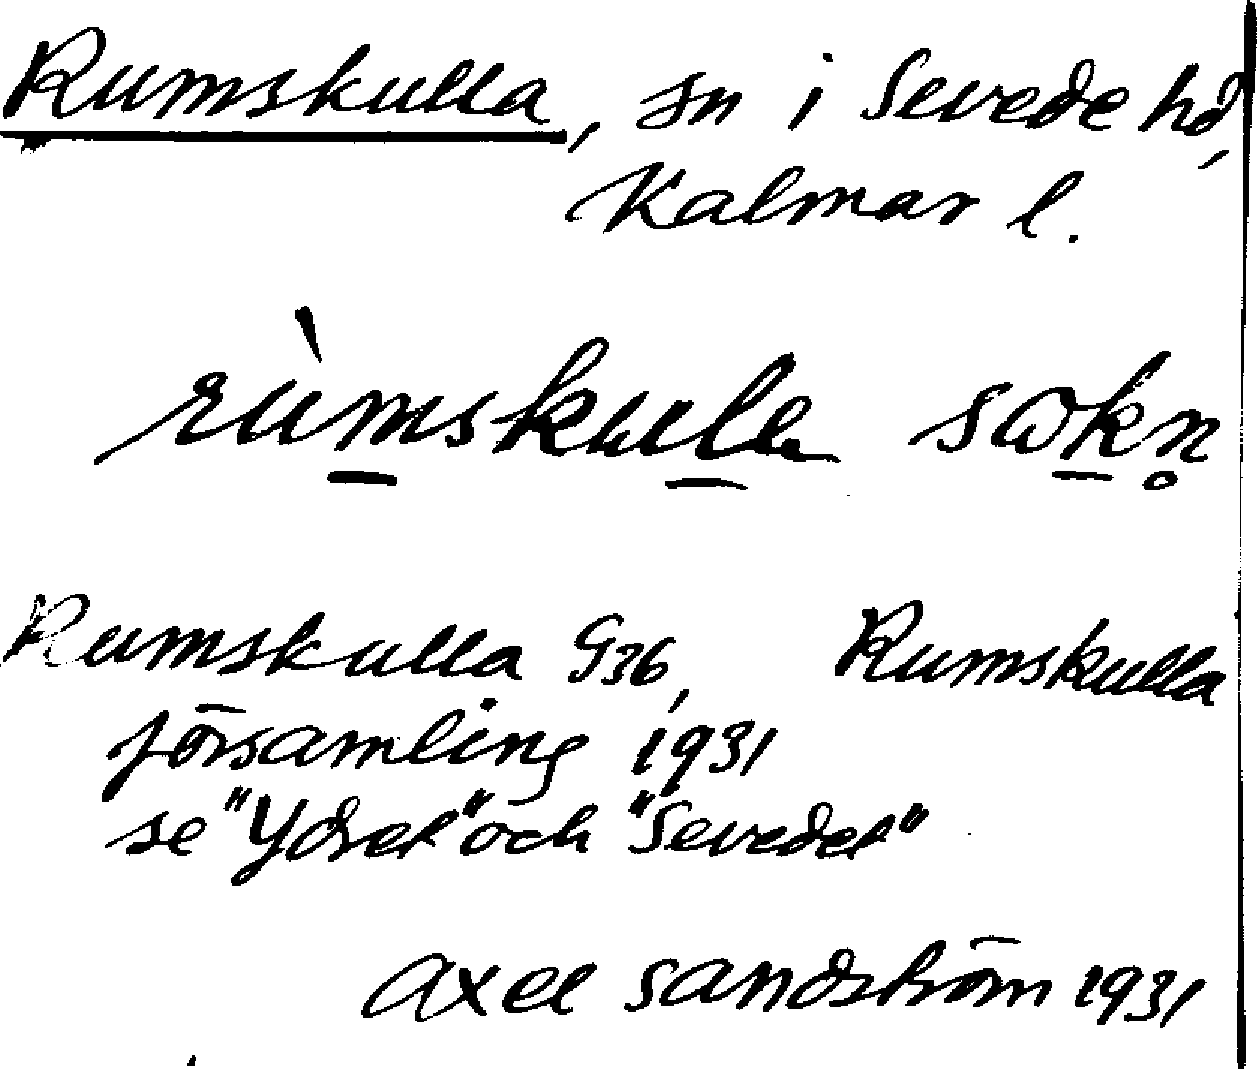 Rumskulla, sn i Sevede hd,
Kalmar l.
rùmskula sωkn
Rumskulla G36, Rumskulla
församling 1931
se "Ydret" och "Sevedet"
Axel Sandström 1931